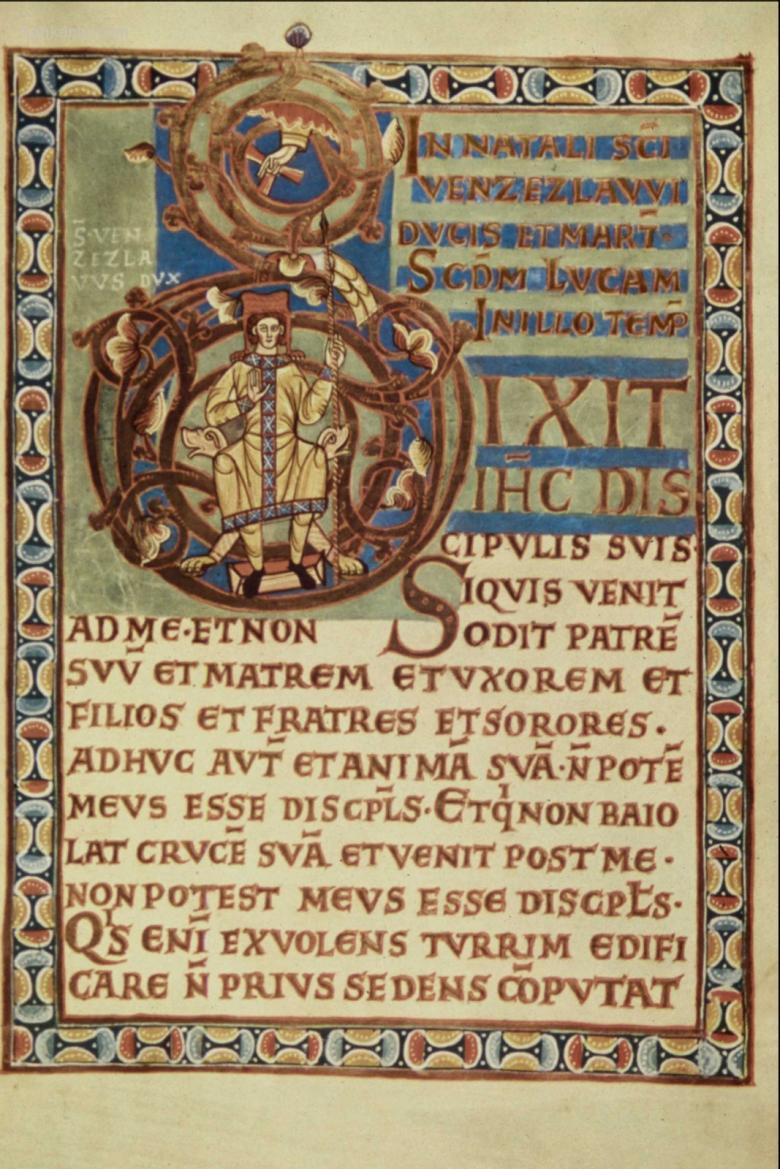 S̄·VEN
ZEZLA
VVS DVX
IN NATALI SC̄I
VENZEZLAVVI
DVCIS ET MART̄·
SCD̄M LVCAM
IN ILLO TEMP̄
IXIT
IH̄C DIS
CIPVLIS SVIS·
SIQVIS VENIT
AD ME·ET NON ODIT PATRĒ
SVV̄ ET MATREM ET VXOREM ET
FILIOS ET FRATRES ET SORORES·
ADHVC AVT̄ ET ANIMĀ SVĀ·N̄ POTĒ
MEVS ESSE DISCPL̄S·ET QͥNON BAIO
LAT CRVCĒ SVĀ ET VENIT POST ME·
NON POTEST MEVS ESSE DISCPL̄S·
QͥS ENĪ EX VOLENS TVRRIM EDIFI
CARE N̄ PRIVS SEDENS CŌPVTAT